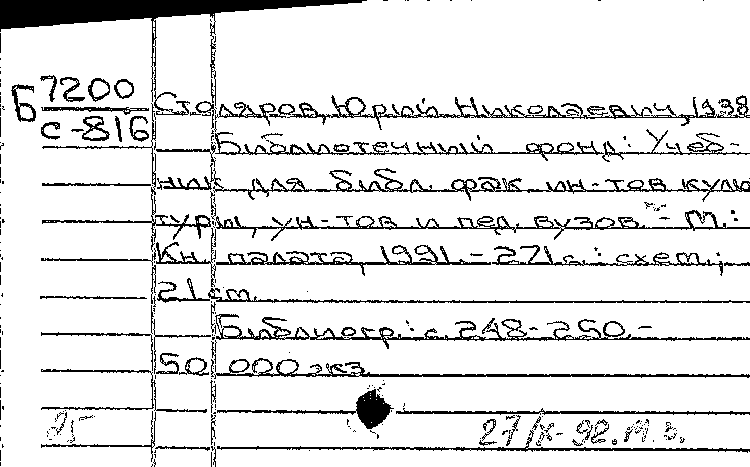 Б 7200
с-816
Столяров, Юрий Николаевич, 1938
Библиотечный фонд: Учеб-
ник для библ. фак. ин-тов куль
туры, ун-тов и пед. вузов. - М.:
Кн. палата, 1991. - 271 с.: схем.;
21 см.
Библиогр.: с. 248-250. -
50 000 экз.
25
27/X-92. М. З.